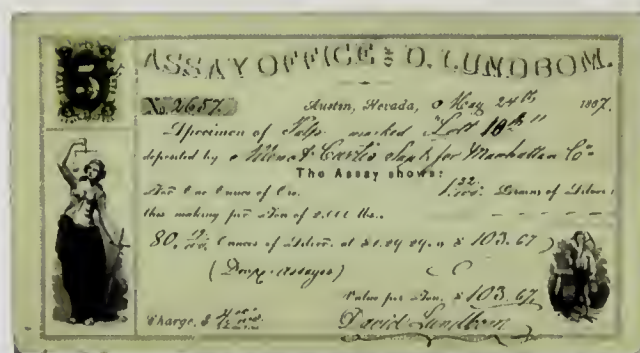 5
ASSAY OFFICE OF D. LUNDBOM.
No. 2657. Austin, Nevada, May 24th 1867.
Specimen of Pulp marked "Lott 18th"
deposited by Bank for Manhattan Co.
The Assay shows:
For One Ounce of Ore. 1 32/100 Grains of Silver;
thus making per Ton of 2.000 lbs.
80. Ounces of Silver. at $ 1.29 29. = $ 103.67
Assayes)
Value per Ton, $ 103.67
Charge, $
David Lundbom